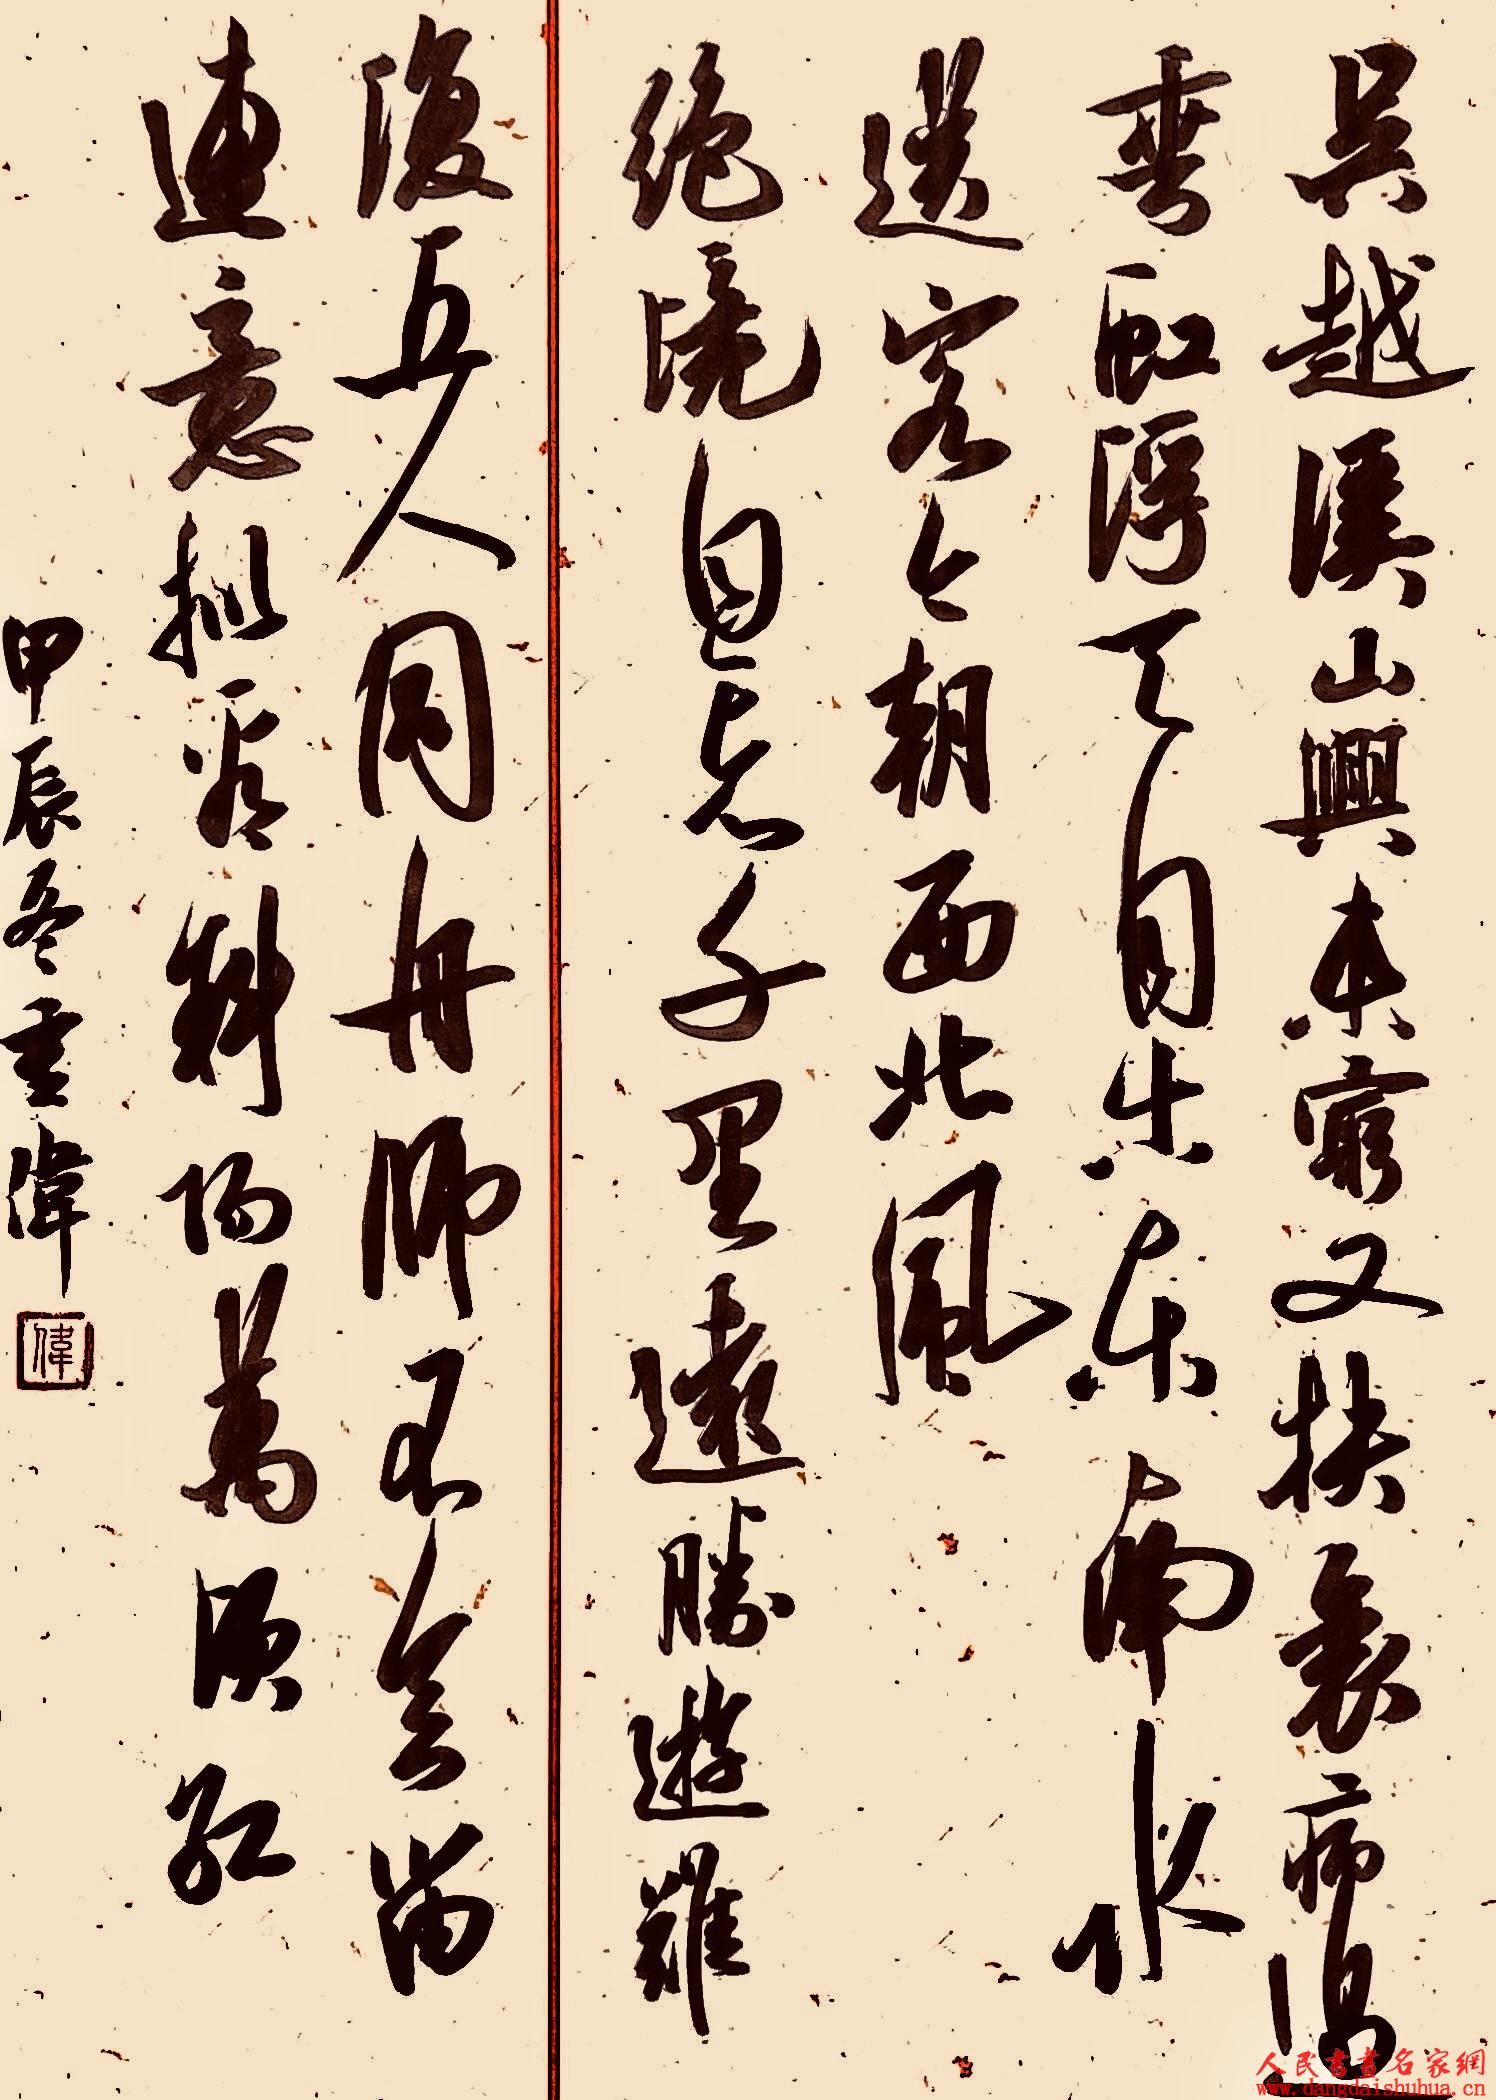 吳越溪山興未窮又扶衰病過
垂虹浮天自是東南水
送客今朝西北風
絕境自忘千里遠勝遊難
復五人同舟師不會留
連意擬看斜陽萬頃紅
甲辰冬偉
偉
人民書畫名家網
www.dangdaishuhua.cn